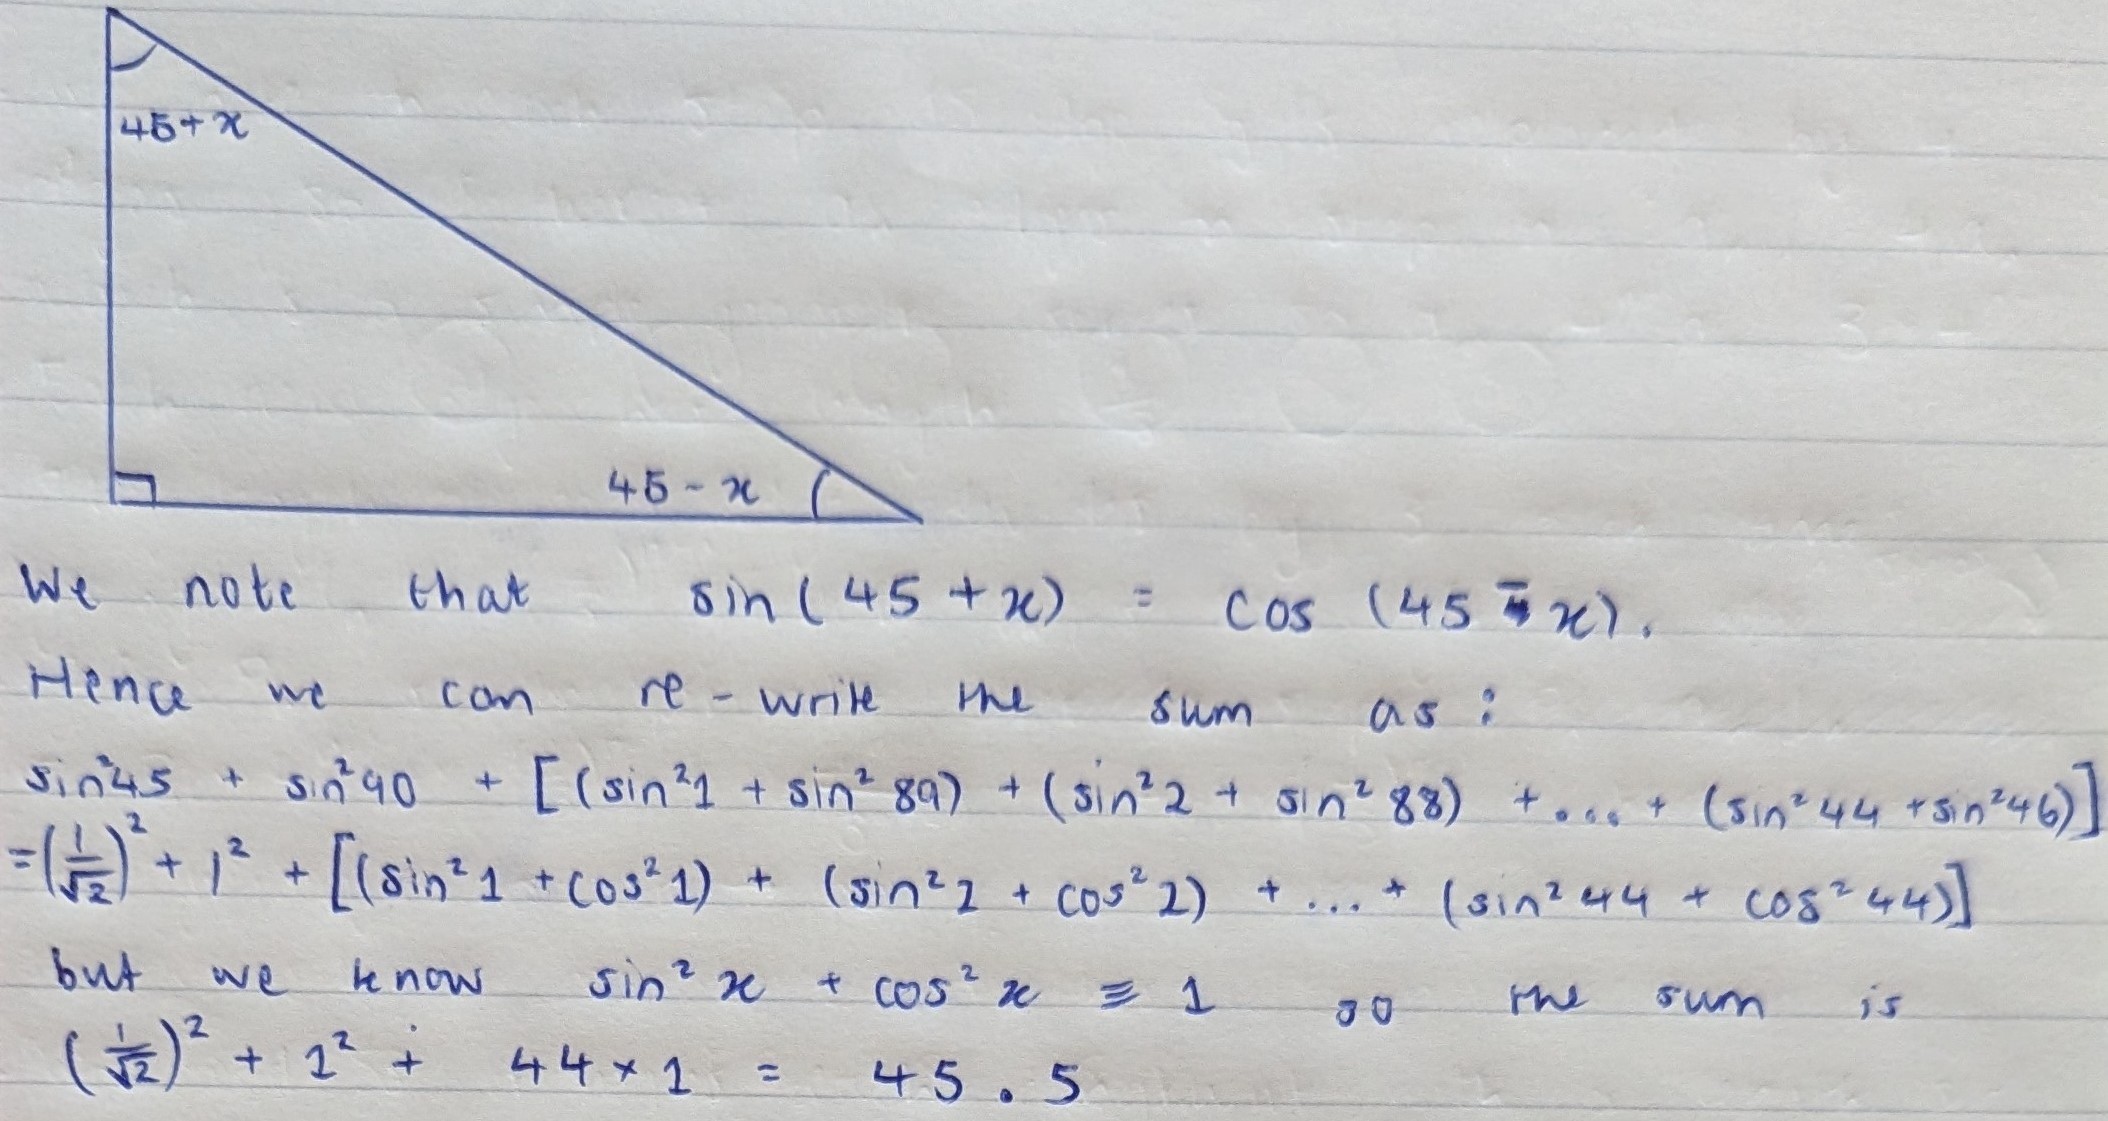 45+x
45-x
We note that sin(45+x) = cos(45-x).
Hence we can re-write the sum as:
sin²45 + sin²90 + [(sin²1 + sin²89) + (sin²2 + sin²88) + .... + (sin²44 + sin²46)]
= (1/√2)² + 1² + [(sin²1 + cos²1) + (sin²2 + cos²2) + ... + (sin²44 + cos²44)]
but we know sin²x + cos²x ≡ 1 so the sum is
(1/√2)² + 1² + 44×1 = 45.5